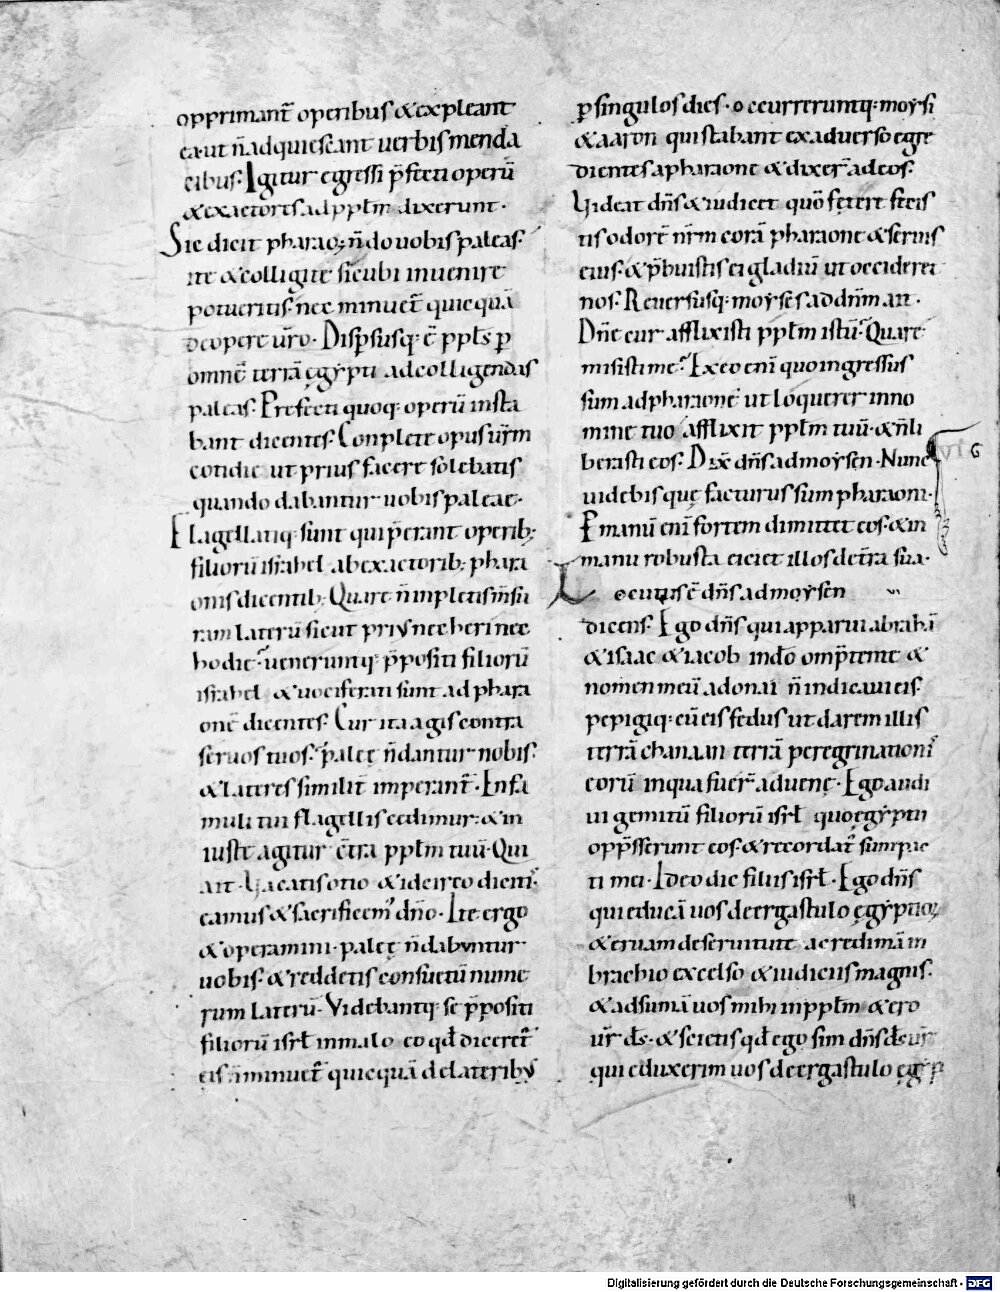 opprimant̄ operibus & expleant
ea·ut n̄ adquiescant uerbis menda
cibus. Igitur egressi p̄fecti operū
& exactores ad pplm̄ dixerunt·
Sic dicit pharao; n̄ do uobis paleas·
ite & colligite sicubi inuenire
potueritis· nec minuet̄ quicquā
de opere ūro· Dispersusq; ē ppl̄s ꝑ
omnē terrā ęgypti ad colligendas
paleas· Prefecti quoq; operū insta
bant dicentes· Conplete opus ur̄m
cotidie ut prius facere solebatis
quando dabantur uobis paleae·
Flagellatiq; sunt qui p̄erant operib;
filiorū israhel ab exactorib; phara
onis dicentib; Quare n̄ impletis m̄su
ram laterū sicut prius nec heri nec
hodie· ueneruntq; p̄positi filiorū
israhel & uociferati sunt ad phara
onē dicentes· Cur ita agis contra
seruos tuos· paleę n̄ dantur nobis·
& lateres similit̄ imperant̄· En fa
muli tui flagellis cedimur· & in
iuste agitur c̄tra pplm̄ tuū· Qui
ait· Uacatis otio & idcirco dicitis·
eamus & sacrificem' dn̄o· Ite ergo
& operamini· paleę n̄ dabuntur
uobis· & reddetis consuetū nume
rum laterū· Videbantq; se p̄positi
filiorū isrl̄ in malo eo qd̄ diceret̄
eis n̄ minuet̄ quicquā de lateribus
ꝑ singulos dies· occurreruntq; moysi
& aaron qui stabant ex aduerso egre
dientes a pharaone & dixer̄ ad eos·
Uideat dn̄s & iudicet quō fetere fecis
tis odorē nr̄m corā pharaone & seruis
eius· & p̄buistis ei gladiū ut occideret
nos· Reuersusq; moyses ad dn̄m ait·
Dn̄e cur afflixisti pplm̄ istū· Quare
misisti me· Ex eo eni quo ingressus
sum ad pharaonē ut loquerer in no
mine tuo afflixit pplm̄ tuū· & n̄ li
berasti eos· Dix̄ dn̄s ad moysen· Nunc
uidebis quę facturus sum pharaoni·
P manū eni fortem dimittet eos· & in
manu robusta eiciet illos de t̄ra sua·
Locutus ē dn̄s ad moysen
dicens· Ego dn̄s qui apparui abrahā
& isaac & iacob in dō omp̄tente &
nomen meū adonai n̄ indicaui eis·
pepigiq; cū eis fedus ut darem illis
terrā chanaan terrā peregrinationis
eorū in qua fuer̄ aduenę· Ego audi
ui gemitū filiorū isrl̄ quo ęgyptii
opp̄sserunt eos· & recordat' sum pac
ti mei· Ideo dic filiis isrl̄· Ego dn̄s
qui educā uos de ergastulo ęgyptioꝝ
& eruam de seruitute ac redimā in
brachio excelso & iudiciis magnis·
& adsumā uos mihi in pplm̄ & ero
ur̄ ds̄· & scietis qd̄ ego sim dn̄s ds̄ ur̄
qui eduxerim uos de ergastulo ęgyp
Digitalisierung gefördert durch die Deutsche Forschungsgemeinschaft · DFG